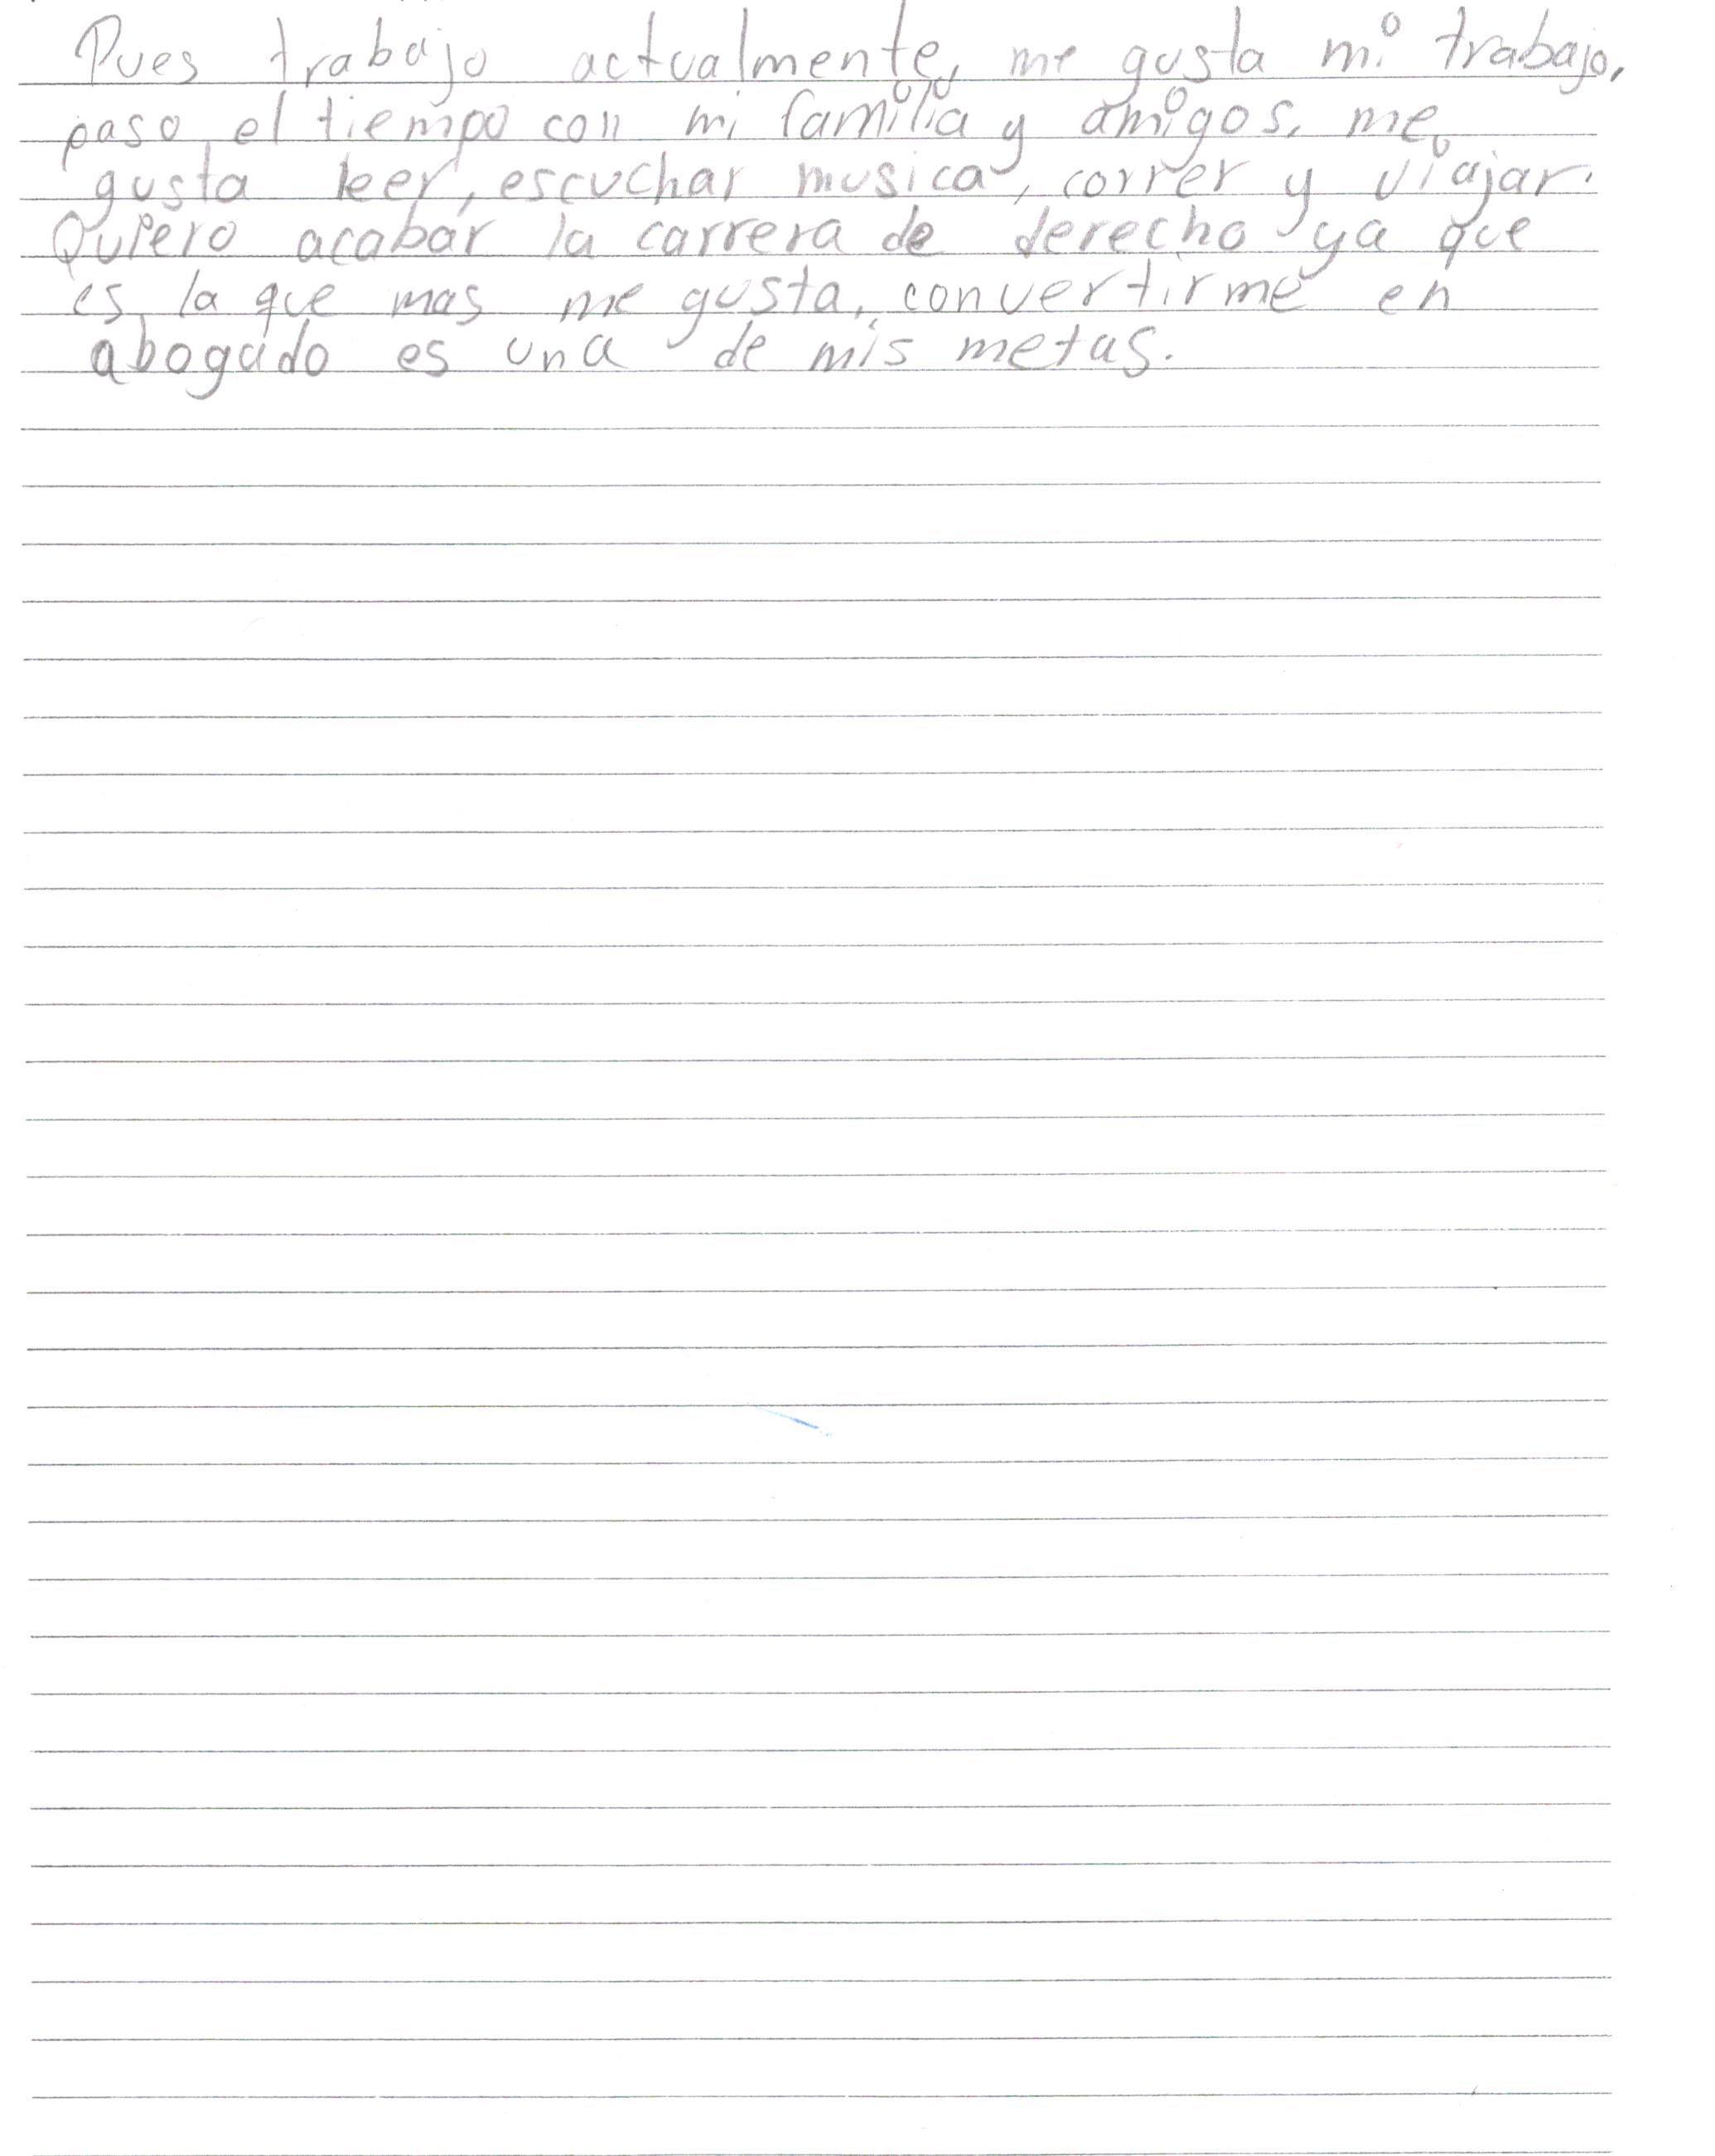 Pues trabajo actualmente, me gusta mi trabajo,
paso el tiempo con mi familia y amigos, me
gusta leer, escuchar musica, correr y viajar.
Quiero acabar la carrera de derecho ya que
es la que mas me gusta, convertirme en
abogado es una de mis metas.